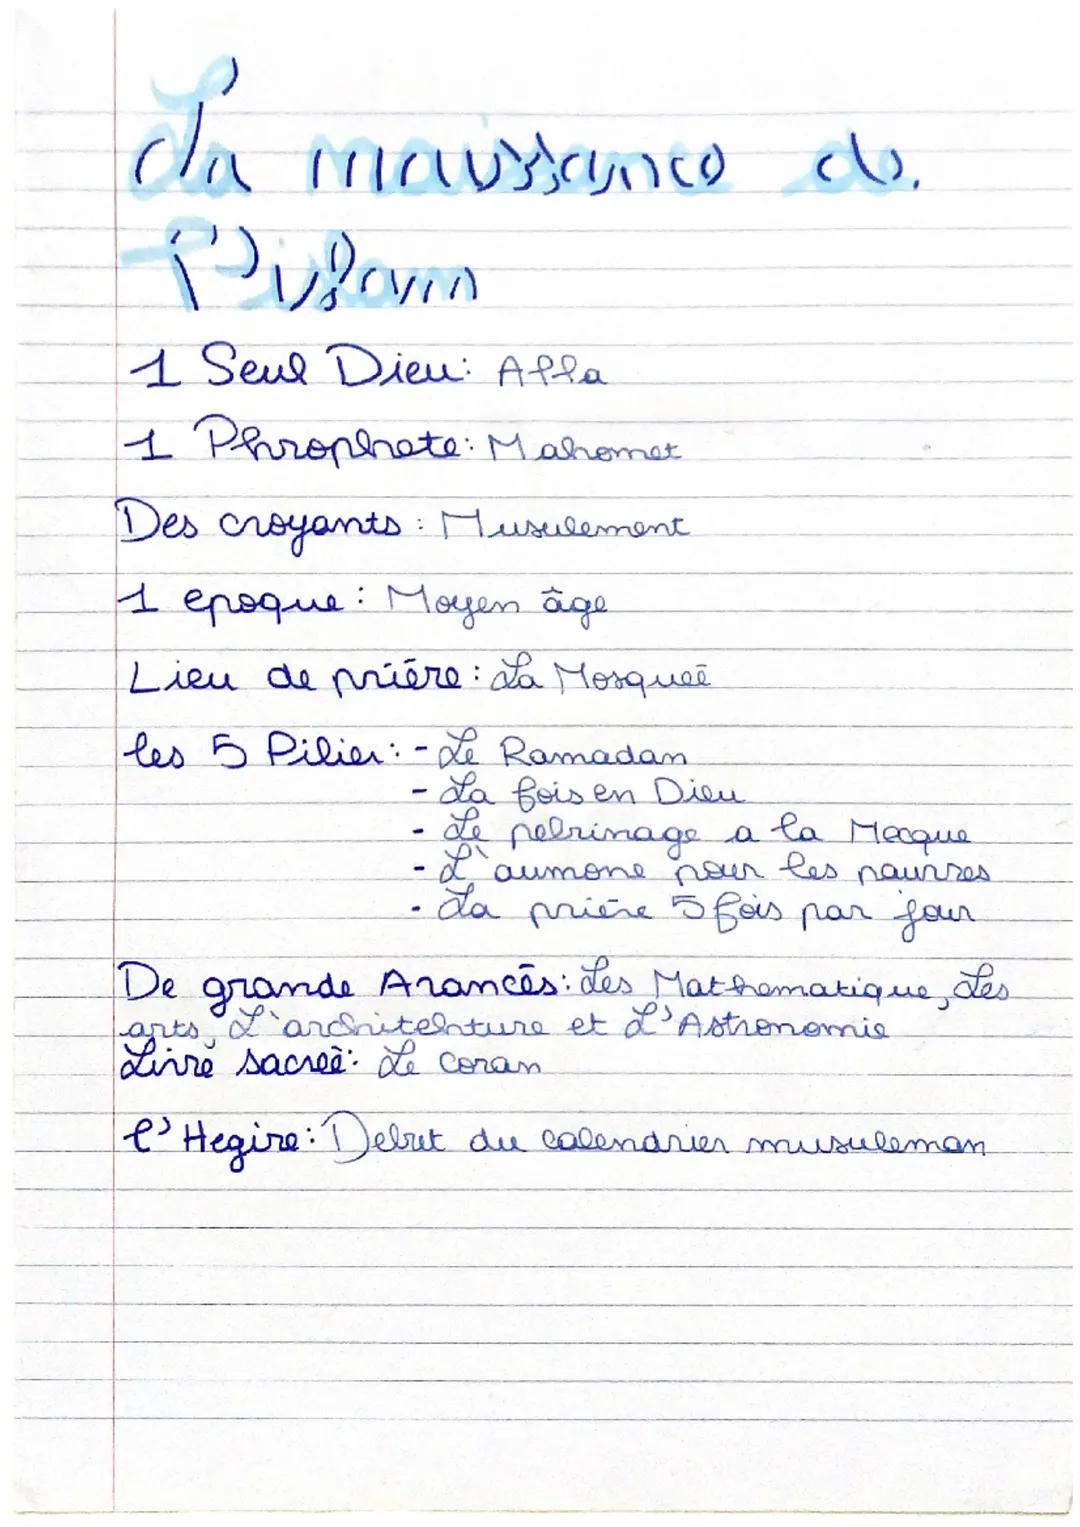 La naissance de
l'islam
1 Seul Dieu: Alla
1 Phrophete: Mahomet
Des croyants: Musulement
1 epoque: Moyen âge
Lieu de prière: La Mosqueé
les 5 Pilier: - Le Ramadan
- La fois en Dieu
- Le pelrinage a la Mecque
- L'aumone pour les pauvres
- La prière 5 fois par jour
De grande Avancés: Les Mathematique, Les
arts, L'architehture et L'Astronomie
Livre sacreé: Le coran
l'Hegire: Debut du calendrier musuleman